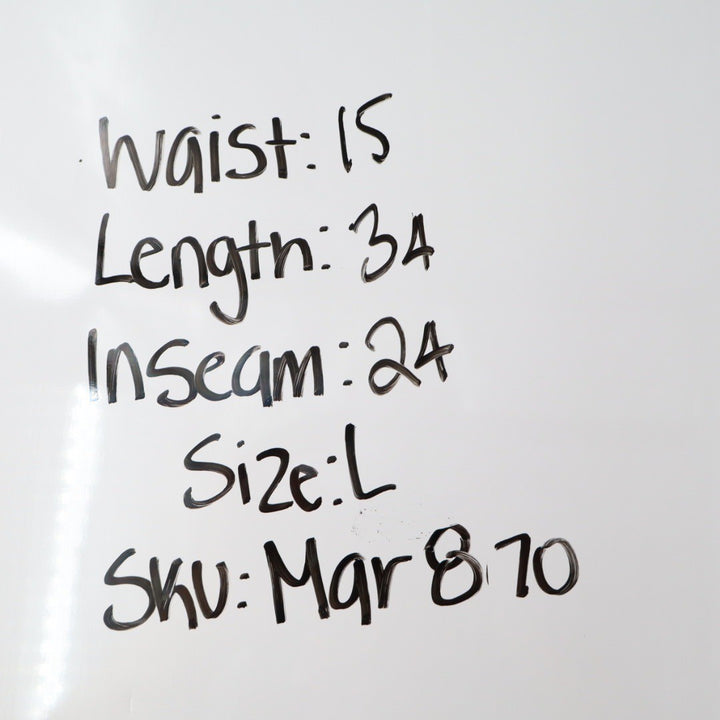 Waist: 15
Length: 34
Inseam: 24
Size: L
Sku: Mar 870